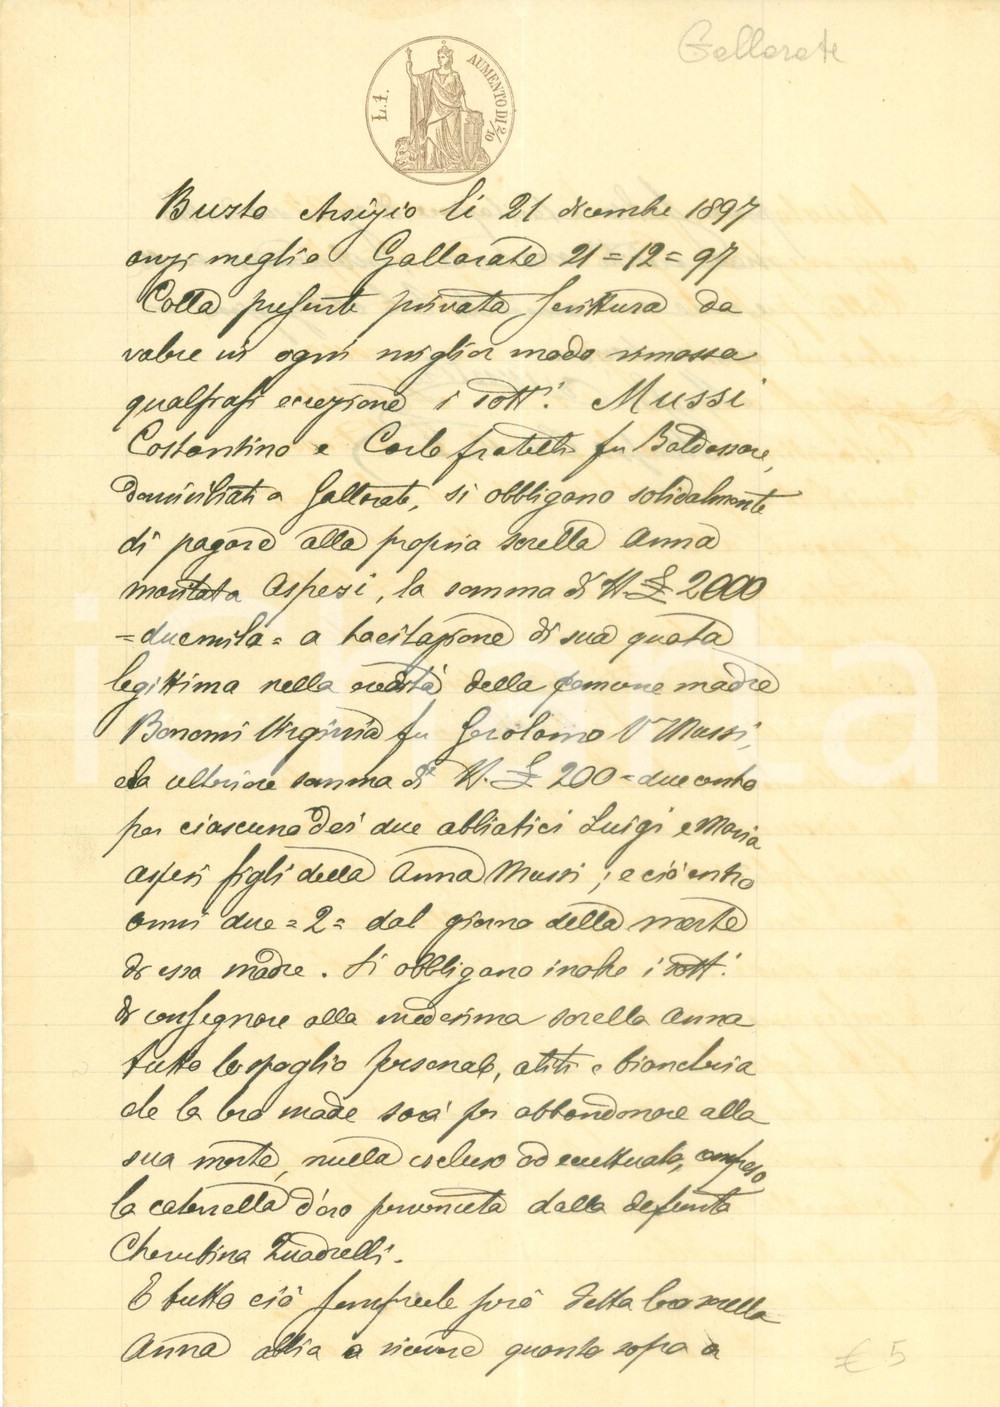 Gallarate
L.1.
AUMENTO DI 2/10
Busto Arsizio li 21 dicembre 1897
anzi meglio Gallarate 21=12=97
Colla presente privata scrittura da
valere in ogni miglior modo rimossa
qualsiasi eccezione i sott.i Mussi
Costantino e Carlo fratelli fu Baldassare,
domiciliati a Gallarate, si obbligano solidalmente
di pagare alla propria sorella Anna
maritata Aspesi, la somma di It. £ 2000
=duemila= a tacitazione di sua quota
legittima nella eredità della comune madre
Bonomi Virginia fu Gerolamo Va Mussi,
e la ulteriore somma di It. £ 200=duecento
per ciascuno dei due abbiatici Luigi e Maria
Aspesi figli della Anna Mussi; e ciò entro
anni due =2= dal giorno della morte
di essa madre. Si obbligano inoltre i sott.i
di consegnare alla medesima sorella Anna
tutto lo spoglio personale, abiti e biancheria
che la loro madre sarà per abbandonare alla
sua morte, nulla escluso ed eccettuato, compreso
la catenella d'oro pervenuta dalla defunta
Cherubina Quadrelli.
E tutto ciò sempreché però detta loro sorella
Anna abbia a ricevere quanto sopra a
€ 5